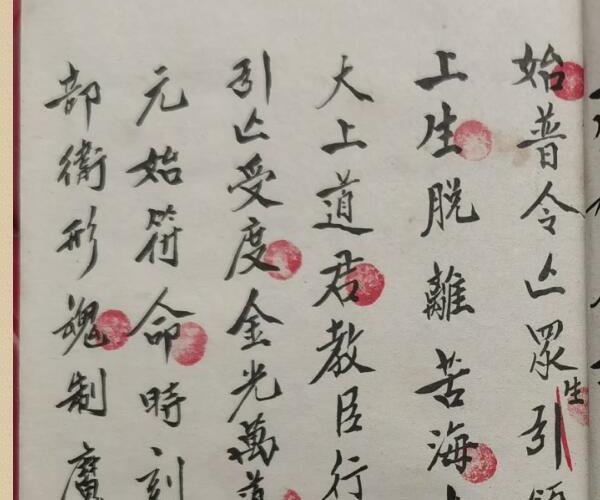 始普令亾眾生引領
上生脫離苦海
大上道君教臣行
引亾受度金光萬道
元始符命時刻
部衛形魂制魔